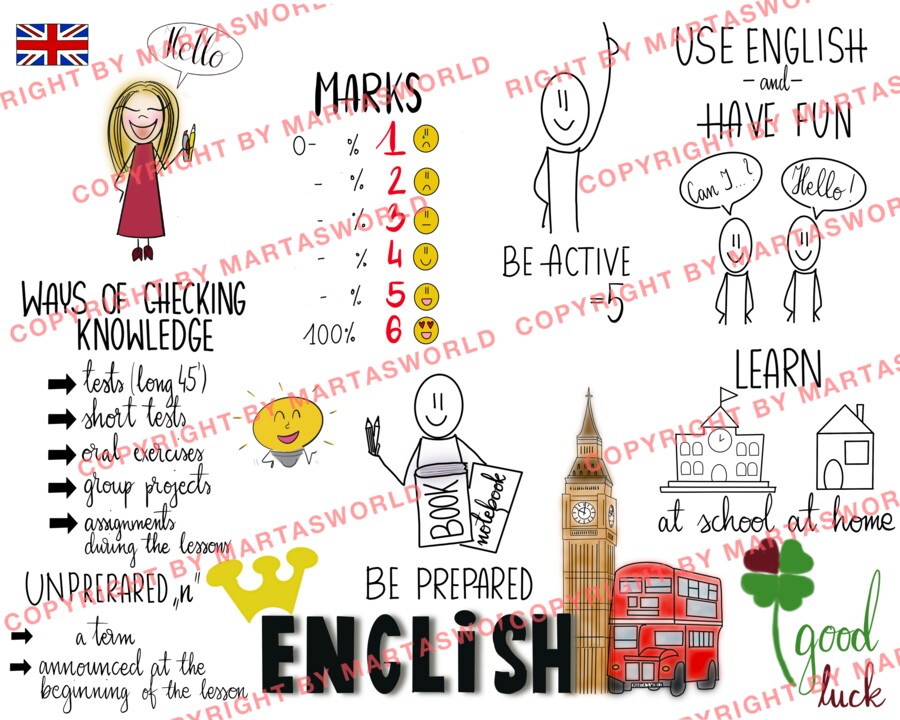 Hello
MARKS
0- % 1
- % 2
- % 3
- % 4
- % 5
100% 6
BE ACTIVE
=5
USE ENGLISH
-and-
HAVE FUN
Can I...?
Hello!
WAYS OF CHECKING
KNOWLEDGE
tests (long 45')
short tests
oral exercises
group projects
assignments
during the lessons
UNPREPARED „n"
a term
announced at the
beginning of the lesson
BOOK
notebook
BE PREPARED
LEARN
at school at home
ENGLiSH
good
luck
MARTASWORLD
COPYRIGHT BY MARTASWORLD
COPYRIGHT BY MARTASWORLD
COPYRIGHT BY MARTASWORLD
COPYRIGHT BY MARTASWORLD